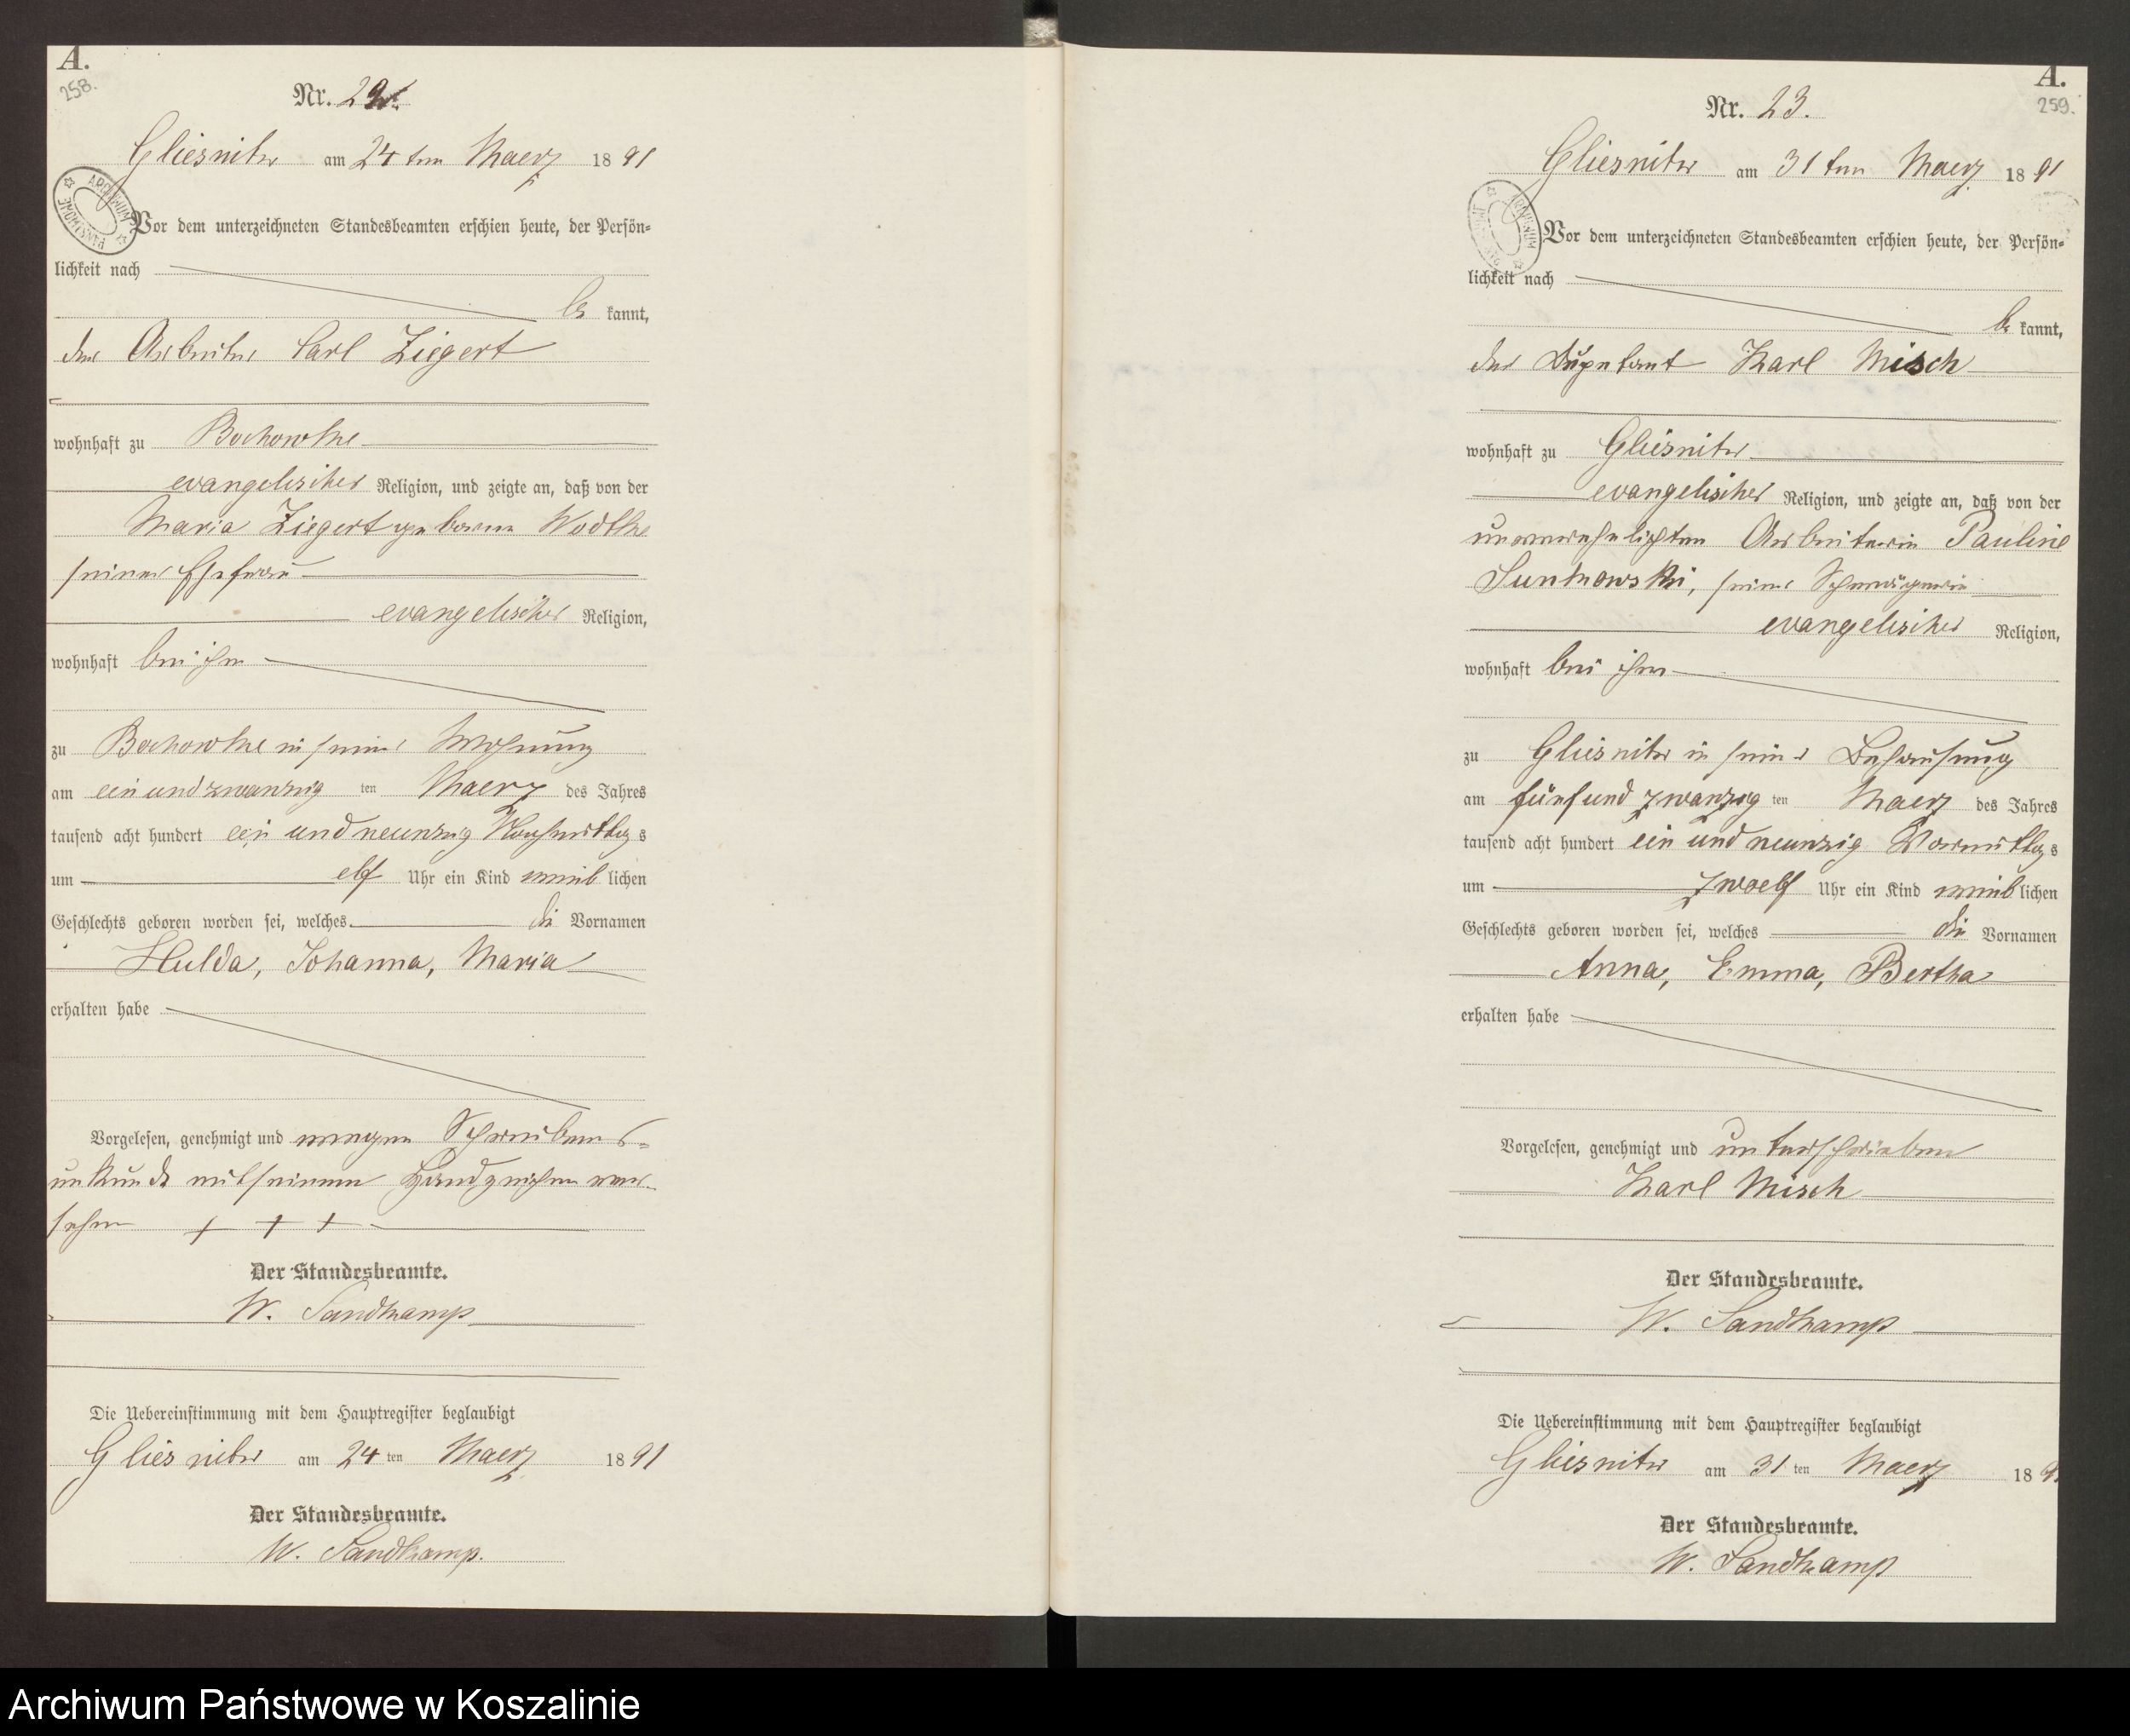 A.
258.
Nr. 22.
Gliesnitz am 24 ten Maerz 1891
Vor dem unterzeichneten Standesbeamten erschien heute, der Persön-
lichkeit nach
be kannt,
der Arbeiter Carl Ziegert
wohnhaft zu Bochowke
evangelischer Religion, und zeigte an, daß von der
Maria Ziegert geborene Wodtke
seiner Ehefrau
evangelischer Religion,
wohnhaft bei ihm
zu Bochowke in seiner Wohnung
am ein und zwanzig ten Maerz des Jahres
tausend acht hundert ein und neunzig Nachmittag s
um elf Uhr ein Kind weib lichen
Geschlechts geboren worden sei, welches die Vornamen
Hulda, Johanna, Maria
erhalten habe
Vorgelesen, genehmigt und wegen Schreibens-
unkunde mit seinem Handzeichen ver-
sehen + + +
Der Standesbeamte.
W. Sandkamp
Die Uebereinstimmung mit dem Hauptregister beglaubigt
Gliesnitz am 24 ten Maerz 1891
Der Standesbeamte.
W. Sandkamp.
A.
259.
Nr. 23.
Gliesnitz am 31 ten Maerz 1891
Vor dem unterzeichneten Standesbeamten erschien heute, der Persön-
lichkeit nach
be kannt,
der Deputant Karl Misch
wohnhaft zu Gliesnitz
evangelischer Religion, und zeigte an, daß von der
unverehelichten Arbeiterin Pauline
seiner Schwägerin
evangelischer Religion,
wohnhaft bei ihm
zu Gliesnitz in seiner Behausung
am fünf und zwanzig ten Maerz des Jahres
tausend acht hundert ein und neunzig Vormittag s
um zwoelf Uhr ein Kind weib lichen
Geschlechts geboren worden sei, welches die Vornamen
Anna, Emma, Bertha
erhalten habe
Vorgelesen, genehmigt und unterschrieben
Karl Misch
Der Standesbeamte.
W. Sandkamp
Die Uebereinstimmung mit dem Hauptregister beglaubigt
Gliesnitz am 31 ten Maerz 189
Der Standesbeamte.
W. Sandkamp
Archiwum Państwowe w Koszalinie